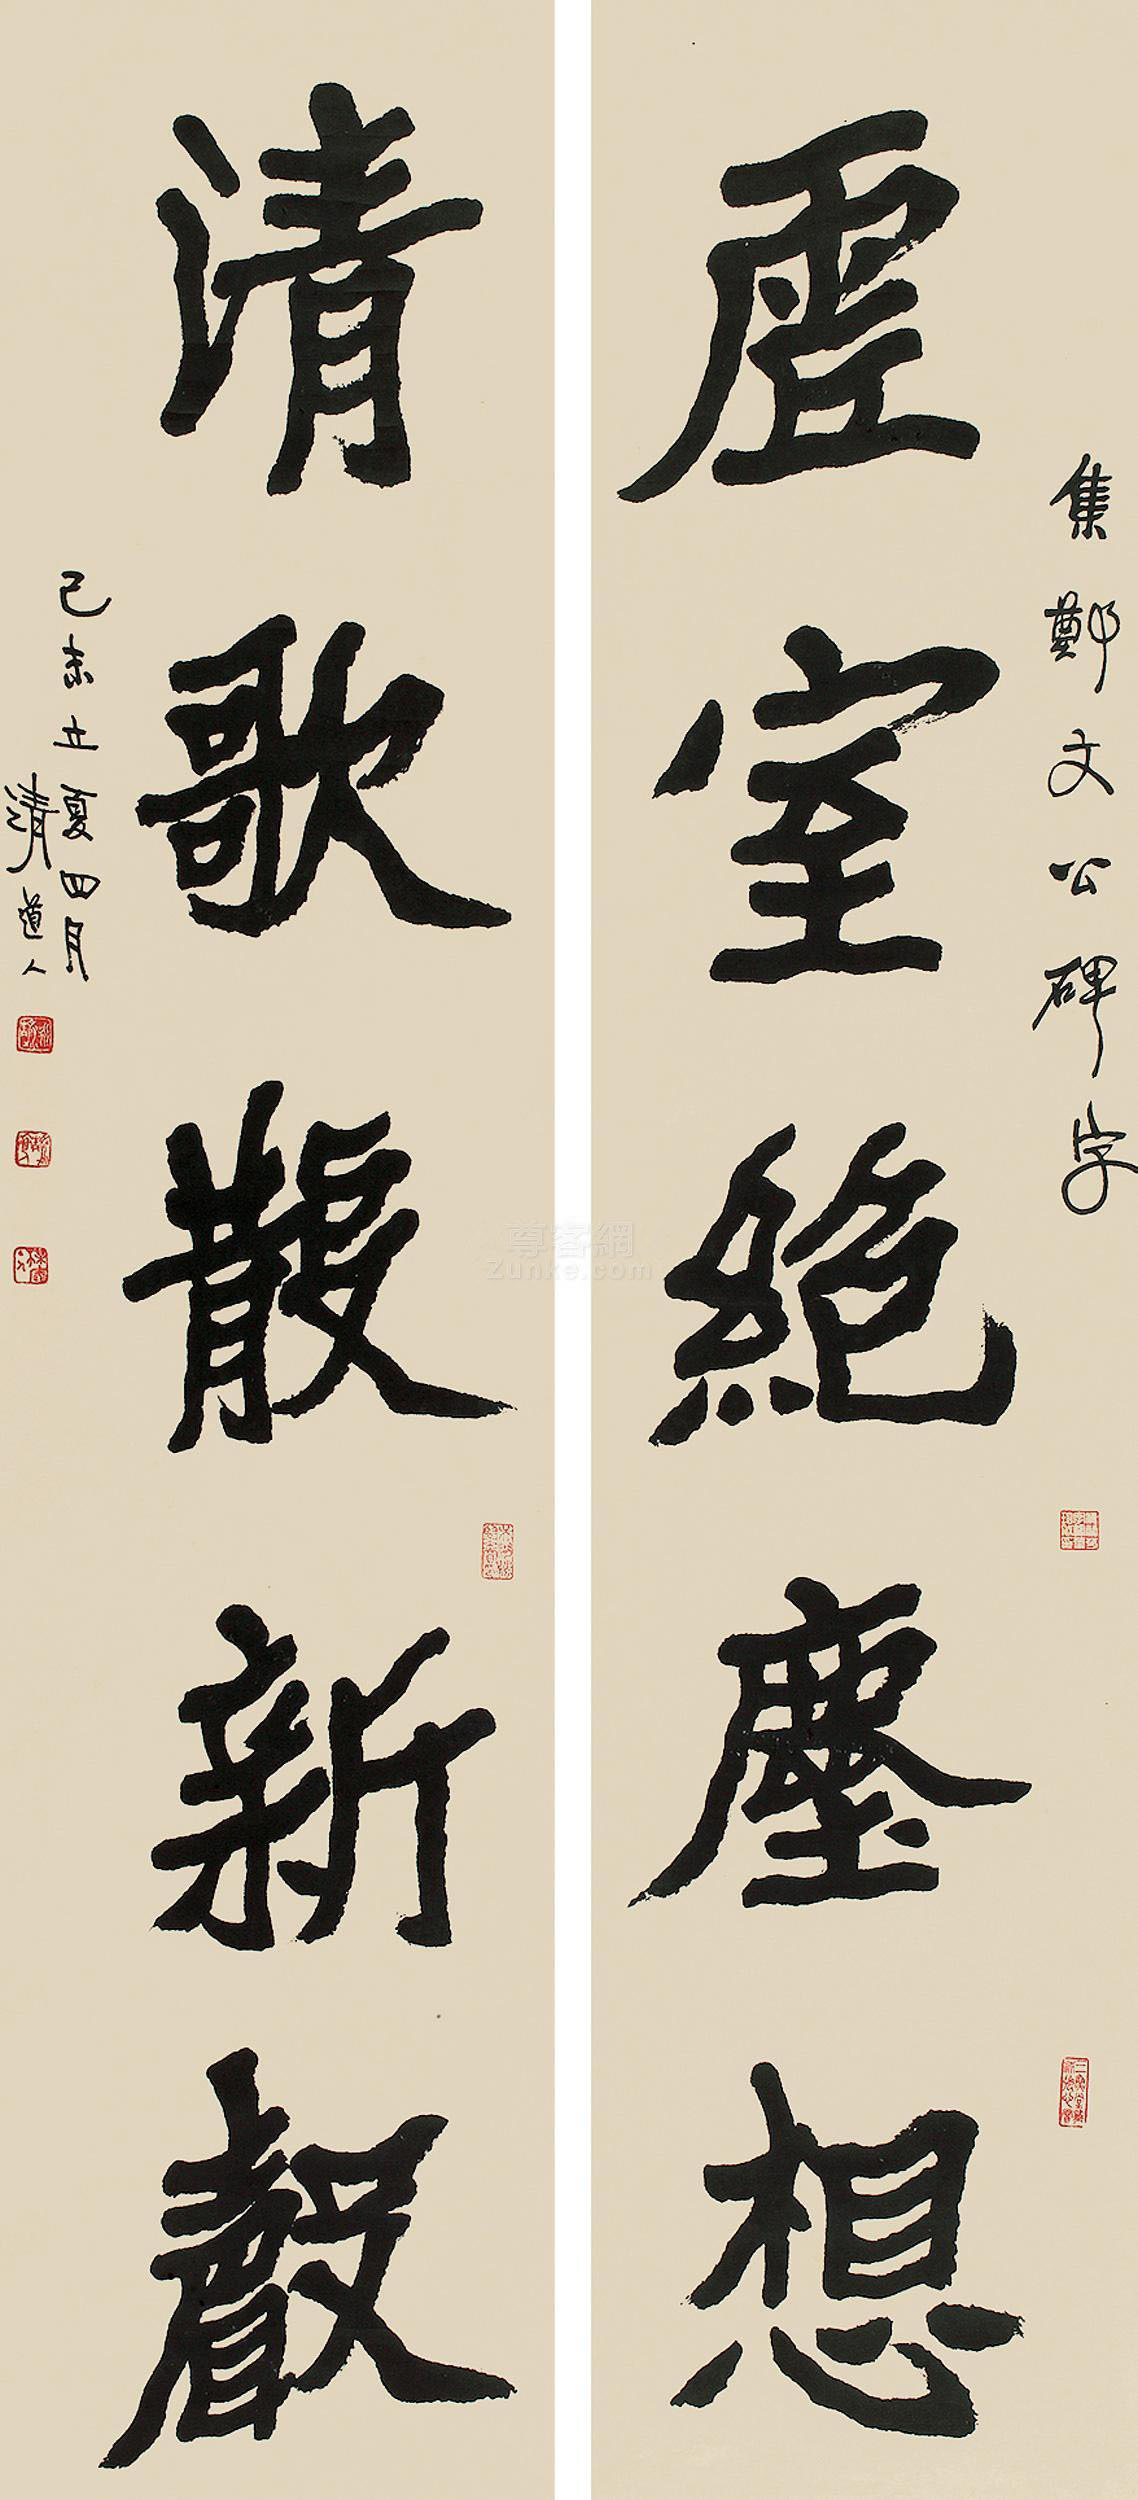 集鄭文公碑字
虛室絕塵想
清歌散新聲
己未立夏四月
清道人
尊客網
Zunke.com